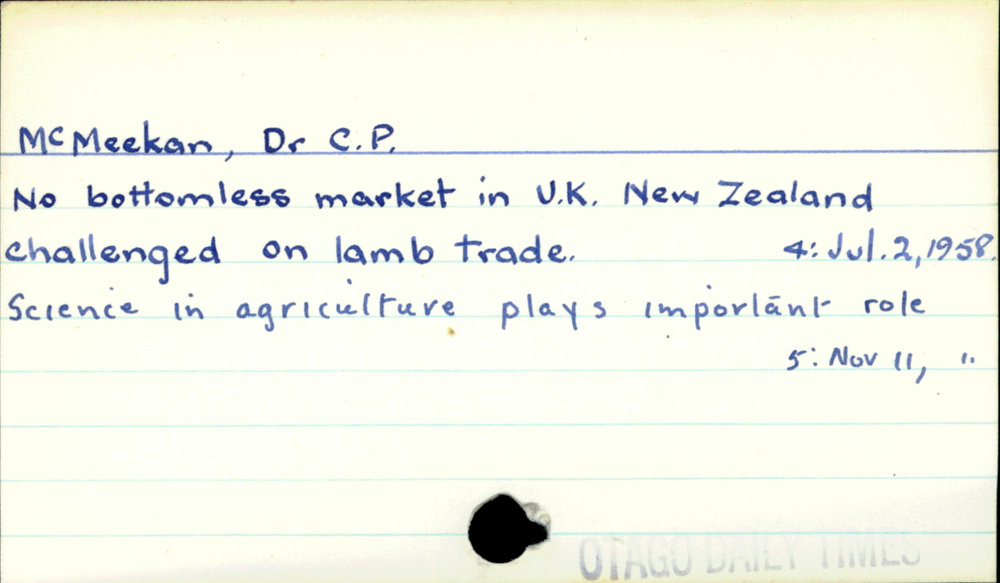 McMeekan, Dr C.P.
No bottomless market in U.K. New Zealand
challenged on lamb trade. 4: Jul. 2, 1958.
Science in agriculture plays important role
5: Nov 11, "
OTAGO DAILY TIMES